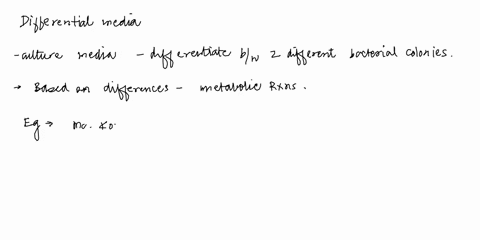 Differential media
-culture media - differentiate b/w 2 different bacterial colonies.
→ Based on differences - metabolic Rxns.
Eg →